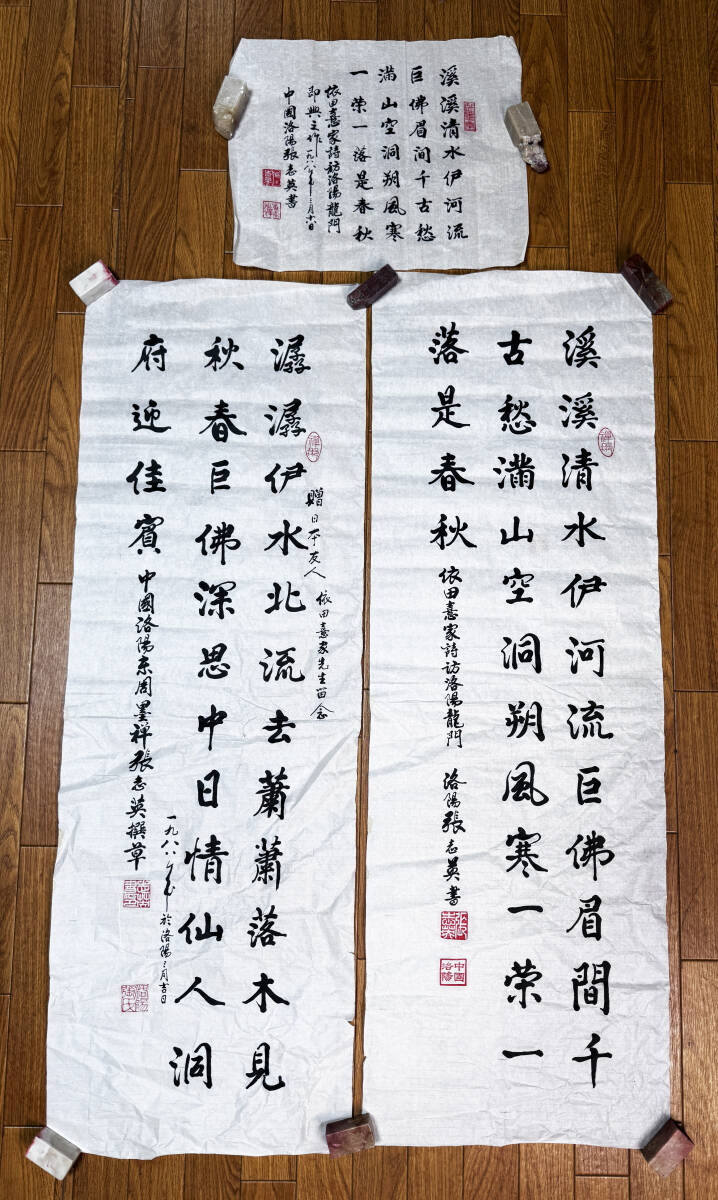 溪溪清水伊河流
巨佛眉间千古愁
满山空洞朔風寒
一荣一落是春秋
依田憙家詩訪洛陽龍門
即興之作 一九八八年三月六日
中國洛陽張志英書
溪溪清水伊河流巨佛眉間千
古愁满山空洞朔風寒一荣一
落是春秋 依田憙家詩訪洛陽龍門 洛陽張志英書
張志英
中國洛陽
贈日本友人 依田憙家先生留念
潺潺伊水北流去蕭蕭落木見
秋春巨佛深思中日情仙人洞
府迎佳賓 中國洛陽東周墨禅張志英撰草
一九八八年於洛陽三月吉日